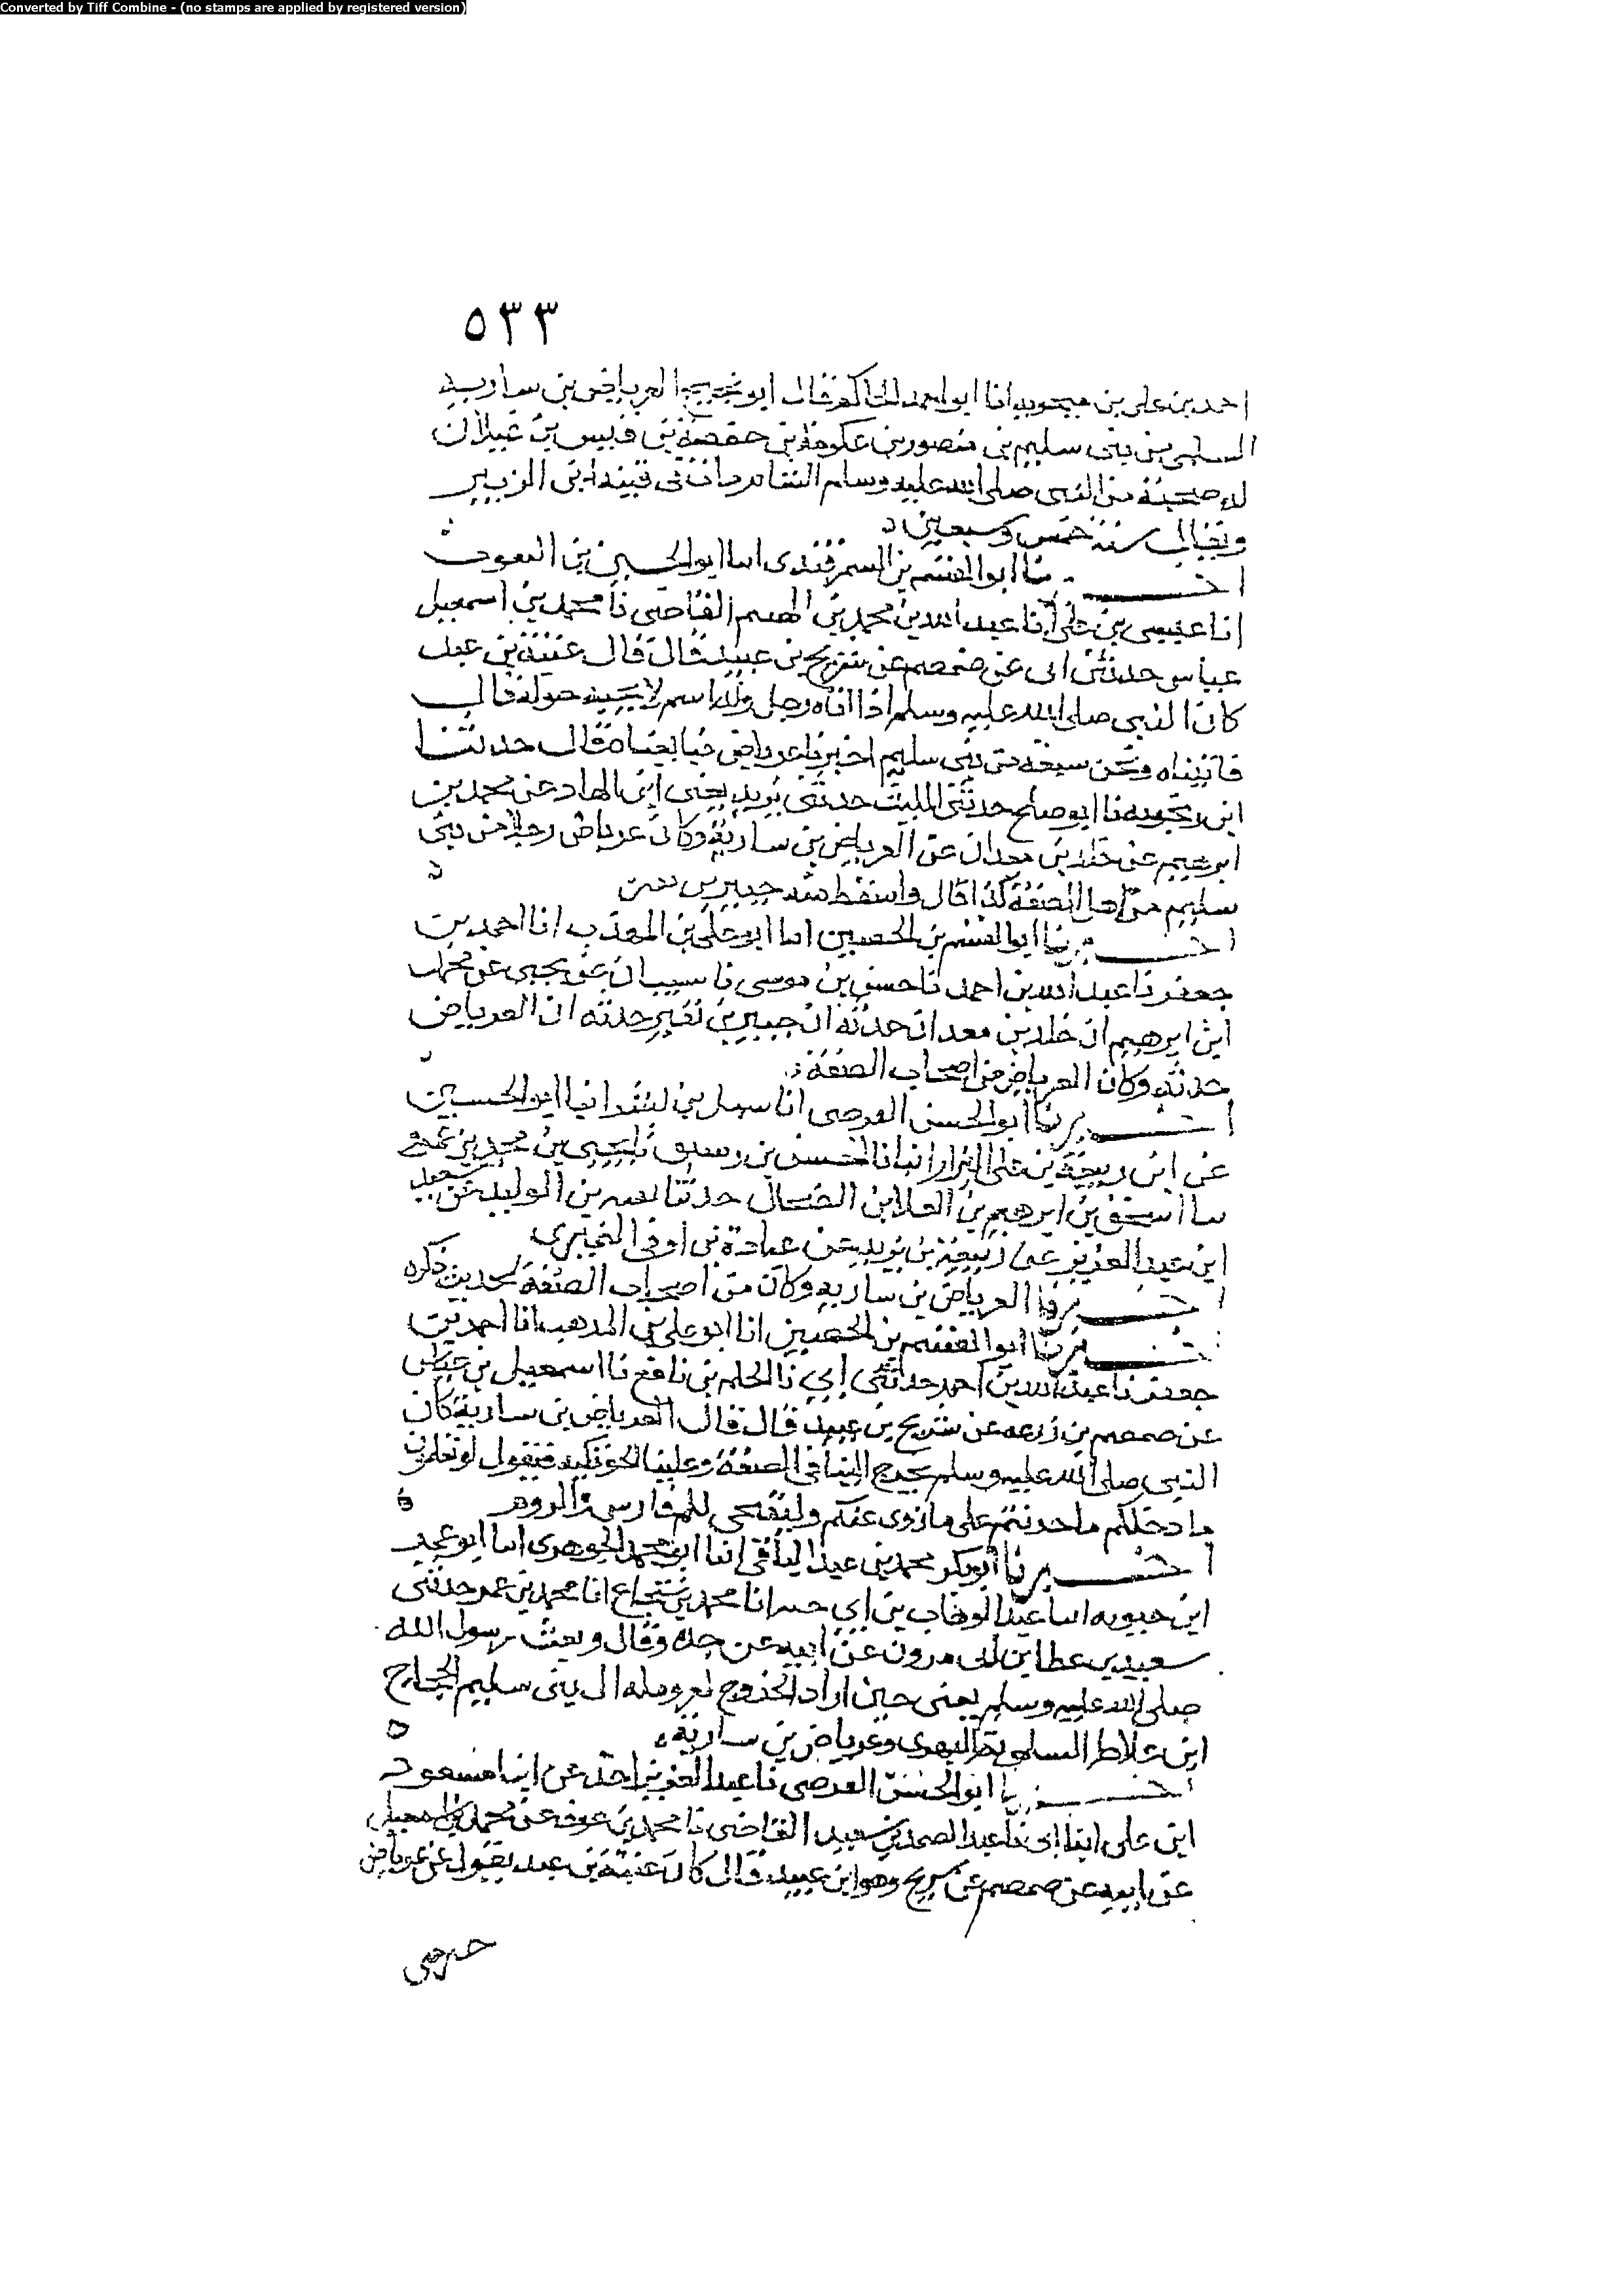 Converted by Tiff Combine - (no stamps are applied by registered version)
٥٣٣
احمد بن على بن منجويه انا ابو احمد الحاكم قال ابو نجيح العرباض بن ساريه
السلمى من بنى سليم بن منصور بن عكرمة بن خصفة بن قيس بن غيلان
له صحبة من النبى صلى الله عليه وسلم الشام مات فى فتنة ابن الزبير
ويقال سنة خمس وسبعين
اخبرنا ابو القسم بن السمرقندى انا ابو الحسين بن النقور
انا عيسى بن على انا عبد الله بن محمد بن القاضى نا محمد بن اسمعيل
عياس حدثنى ابى عن ضمضم عن شريح بن عبيد قال قال عتبة بن عبد
كان النبى صلى الله عليه وسلم اذا اتاه رجل وله اسم لا يحبه حوله قال
فاتيناه ونحن سبعة من بنى سليم اخبرنا عرباض فبايعناه قال حدثنا
ابن زنجويه نا ابو صلح حدثنى الليث حدثنى يزيد يعنى ابن الهاد عن محمد بن
ابرهيم عن خلد بن معدان عن العرباض بن سارية وكان عرباض رجلا من بنى
سليم من اهل الصفة كذا قال واسقط منه جبير بن
اخبرنا ابو القسم بن الحصين انا ابو على بن المذهب انا احمد بن
جعفر نا عبد الله بن احمد نا حسن بن موسى نا سيبان عن يحيى عن محمد
ابن ابرهيم ان خلد بن معدان حدثه ان جبير بن نفير حدثه ان العرباض
حدثه وكان العرباض من اصحاب الصفة
اخبرنا ابو الحسن الفرضى انا سهل بن انبا ابو الحسين
على ابن ربيعة بن على البزار انبانا الحسن بن رسيق نا يحيى بن محمد بن عمرو
سا اسحق بن ابرهيم بن العلا بن الضحاك حدثنا بن الوليد عن سعيد
ابن عبد العزيز عن ربيعة بن يزيد عن عبادة بن اوفى النميرى
اخبرنا العرباض بن ساريه وكان من اصحاب الصفة لحديث ذكره
اخبرنا ابو القسم بن الحصين انا ابو على بن المذهب انا احمد بن
جعفر نا عبد الله بن احمد حدثنى ابى نا الحكم بن نافع نا اسمعيل بن عياش
عن ضمضم بن زرعه عن شريح بن عبيد قال قال العرباض بن سارية كان
النبى صلى الله عليه وسلم يخرج الينا فى الصفة وعلينا الحوتكيه فيقول لو تعلمون
ما دخلكم ما حزنتم على ما زوى عنكم وليفتحن لكم فارس والروم
اخبرنا ابو بكر محمد بن عبد الباقى انا ابو محمد الجوهرى انا ابو عمر
ابن حيويه انا عبد الوهاب بن ابى حيه انا محمد بن شجاع انا محمد بن عمر حدثنى
سعيد بن عطا ابن ابى مرون عن ابيه عن جده وقال وبعث رسول الله
صلى الله عليه وسلم يعنى حين اراد الخروج الى بنى سليم الحجاج
ابن علاط السلمى وعرباض بن سارية
اخبرنا ابو الحسن الفرضى نا عبد العزيز احمد انبا مسعود
ابن على انبا ابى نا عبد الصمد بن سعيد القاضى نا محمد بن عوف عن محمد بن اسمعيل
عن ابيه عن ضمضم عن شريح وهو ابن عبيد قال كان عتبة بن عبد يقول عن عرباض